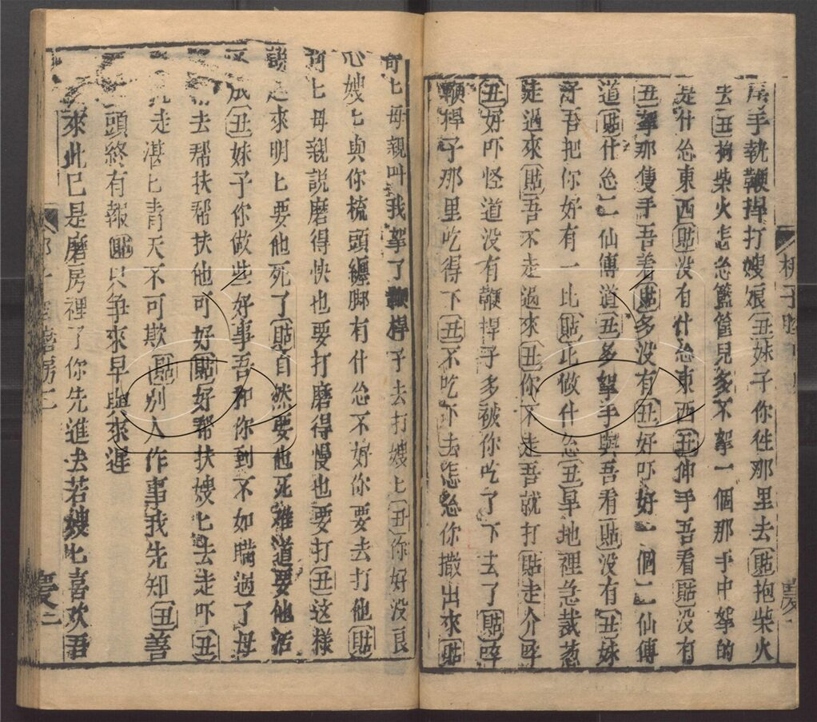 手執鞭捍打嫂哀丑妹子你徃那里去貼抱柴火
去丑抱柴火怎怹籃筐見多不拏一個那手中拏的
是什怹東西貼没有什怹東西丑伸手吾看貼没有
丑拏那隻手吾看貼多没有丑好吓好一個二仙傳
道貼什怹二仙傳道丑多拏手與吾看貼没有丑妹
子吾把你好有一比貼比做什怹丑旱地裡急裁葱
走過來貼吾不走過來丑你不走吾就打貼走介呼
丑好吓怪道没有鞭捍子多被你吃了下去了貼呼
鞭捍子那里吃得下丑不吃下去怎怹你撒出來貼
奇匕母親叫我拏了鞭捍子去打嫂匕丑你好没良
心嫂匕與你梳頭纏脚有什怹不好你要去打他貼
奇匕母親説磨得快也要打磨得慢也要打丑这様
説起來明匕要他死了貼自然要他死難道要他活
丑妹子你做些好事吾和你到不如瞞過了母
去帮扶帮扶他可好貼好帮扶嫂匕去走吓丑
走湛匕青天不可欺貼别人作事我先知丑善
頭終有報貼只争來早與來遲
來此已是磨房裡了你先進去若嫂匕喜欢吾
慶二